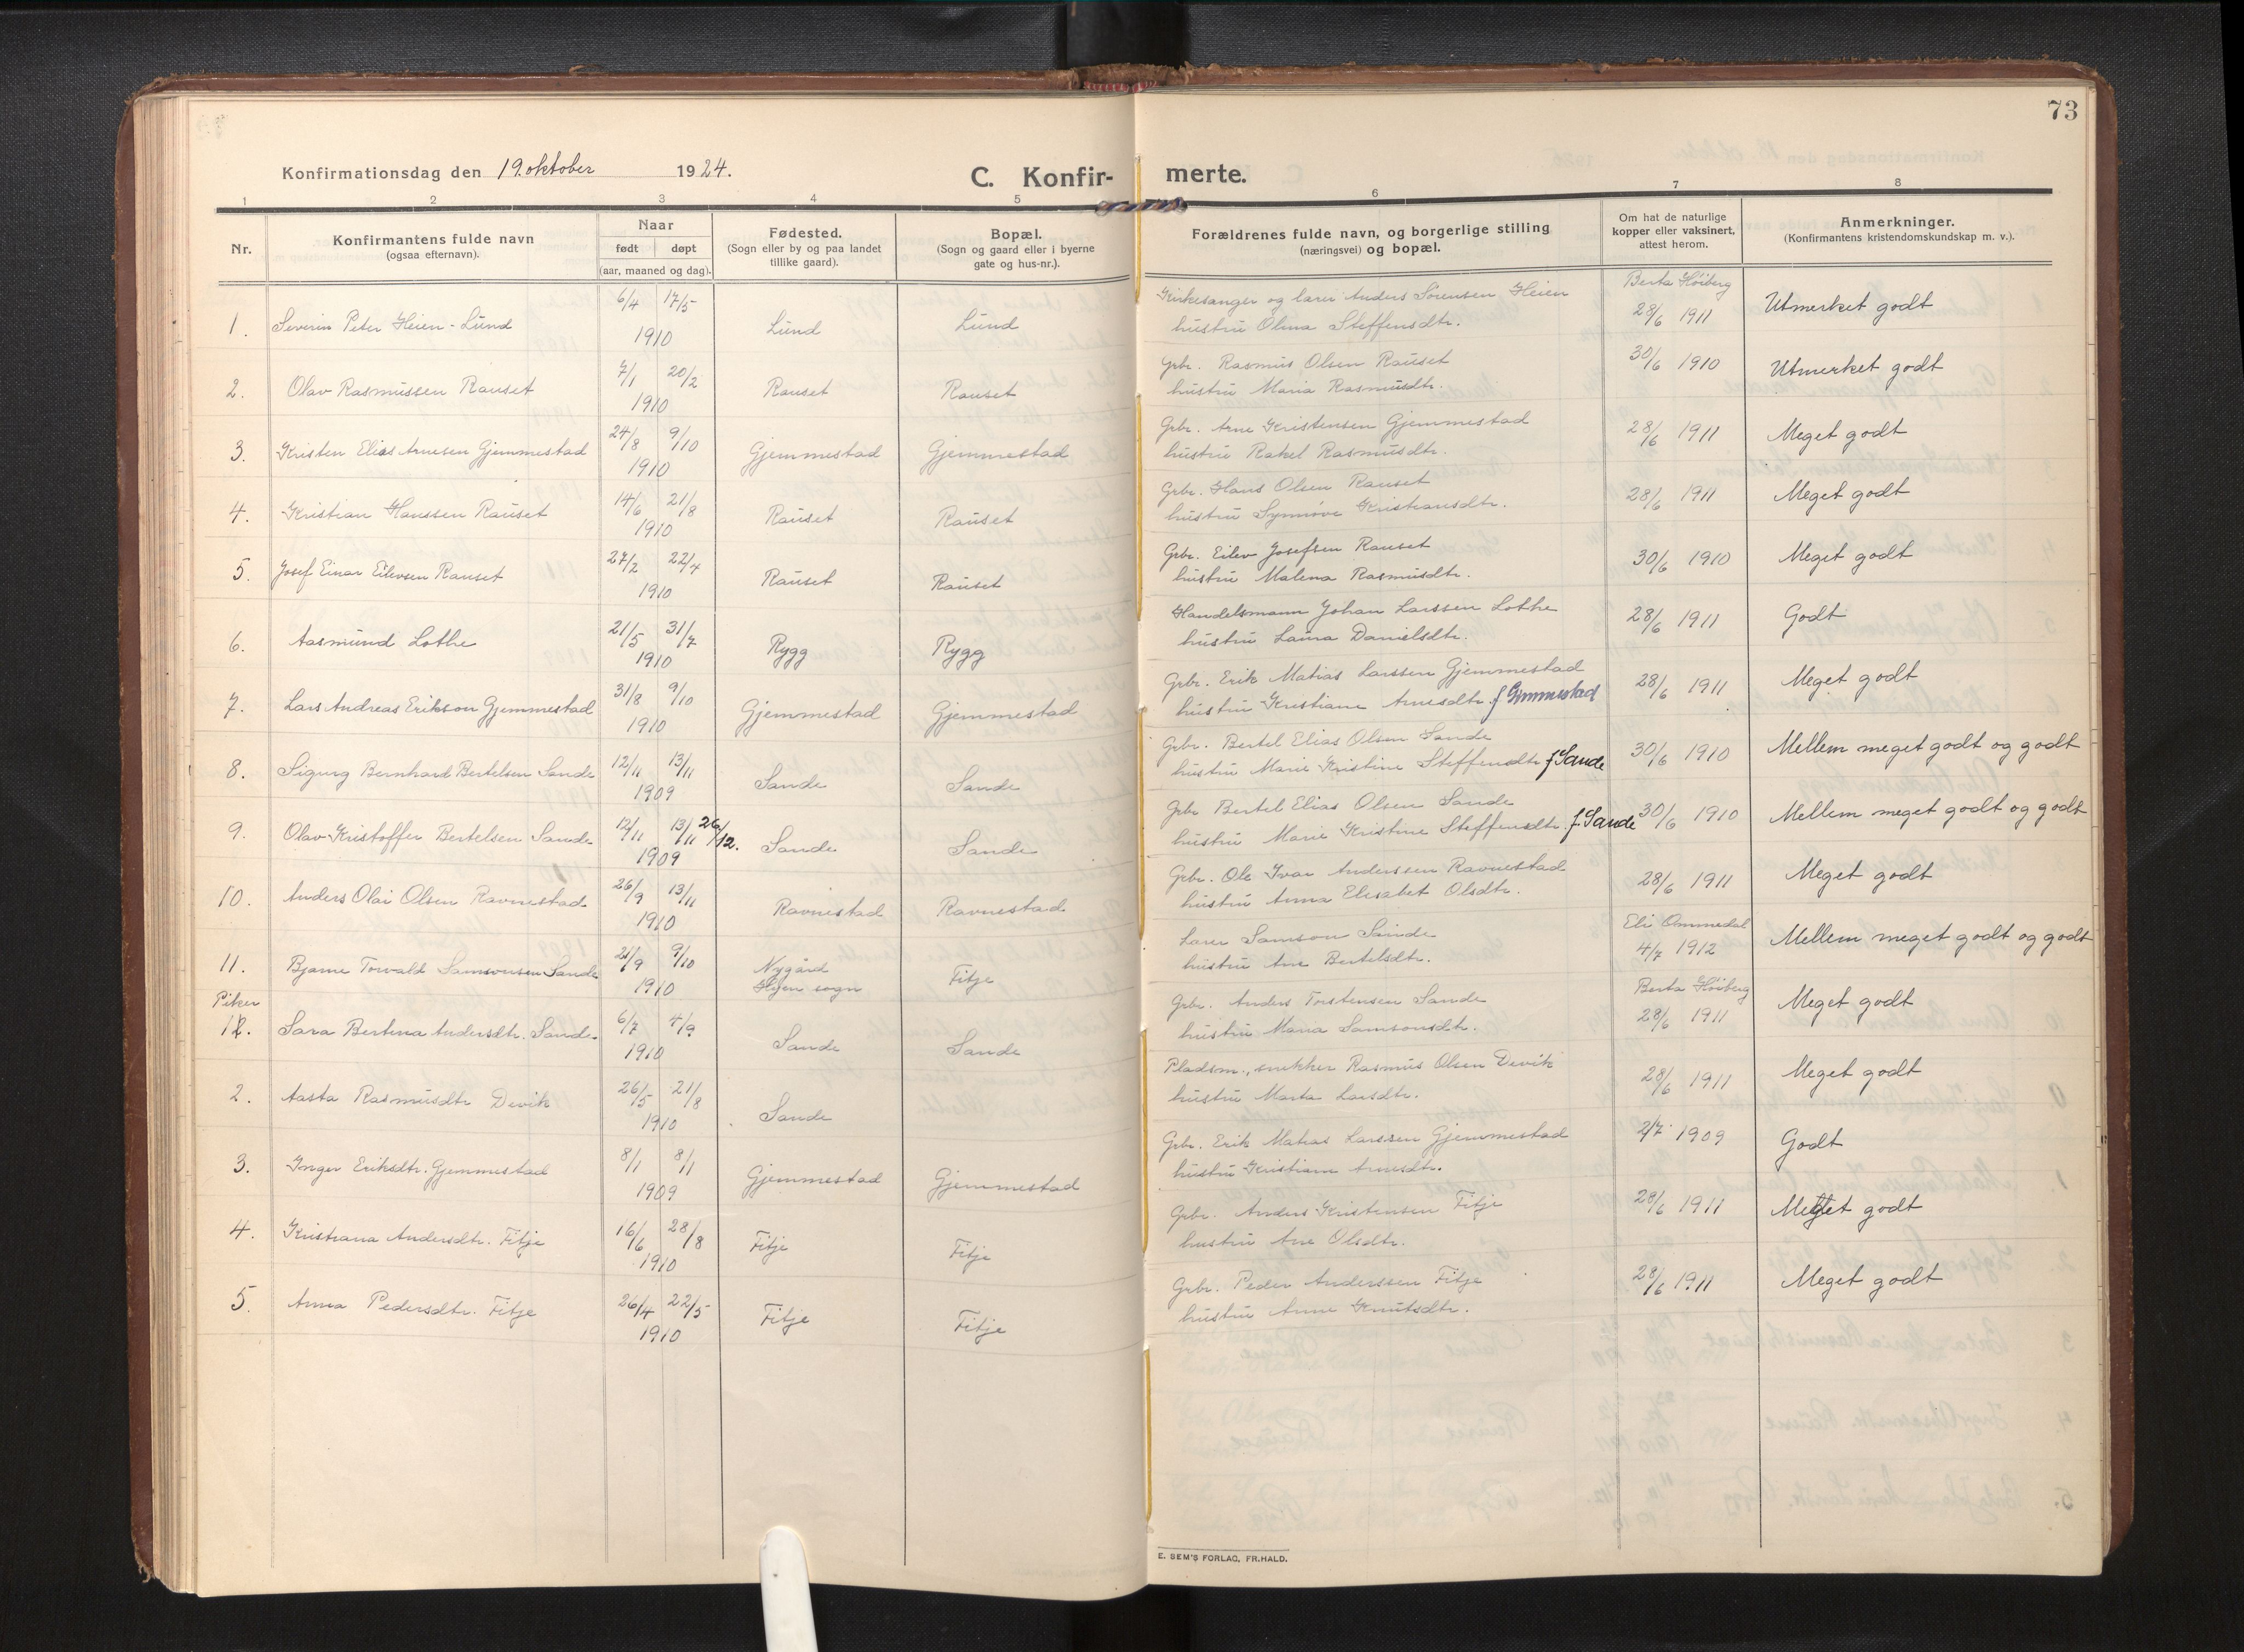 73
Konfirmationsdag den 19. oktober 1924.
C. Konfir- merte.
1 2 3 4 5 6 7 8
Nr. Konfirmantens fulde navn (ogsaa efternavn). Naar født døpt (aar, maaned og dag). Fødested. (Sogn eller by og paa landet tillike gaard). Bopæl. (Sogn og gaard eller i byerne gate og hus-nr.). Forældrenes fulde navn, og borgerlige stilling (næringsvei) og bopæl. Om hat de naturlige kopper eller vaksinert, attest herom. Anmerkninger. (Konfirmantens kristendomskundskap m. v.).
1. Severin Peter Heien-Lund 6/4 17/5 1910 Lund Lund Kirkesanger og lærer Anders Sørensen Heien hustru Olina Steffensdtr. Berta Høiberg 28/6 1911 Utmerket godt
2. Olav Rasmussen Rauset 7/1 20/2 1910 Rauset Rauset Grbr. Rasmus Olsen Rauset hustru Maria Rasmusdtr. 30/6 1910 Utmerket godt
3. Kristen Elias Arnesen Gjemmestad 24/8 9/10 1910 Gjemmestad Gjemmestad Grbr. Arne Kristensen Gjemmestad hustru Rakel Rasmusdtr. 28/6 1911 Meget godt
4. Kristian Hanssen Rauset 14/6 21/8 1910 Rauset Rauset Grbr. Hans Olsen Rauset hustru Synnøve Kristiansdtr. 28/6 1911 Meget godt
5. Josef Einar Eilevsen Rauset 27/2 22/4 1910 Rauset Rauset Grbr. Eilev Josefsen Rauset hustru Malena Rasmusdtr. 30/6 1910 Meget godt
6. Aasmund Lothe 21/5 31/7 1910 Rygg Rygg Handelsmann Johan Larssen Lothe hustru Laura Danielsdtr. 28/6 1911 Godt
7. Lars Andreas Erikson Gjemmestad 31/8 9/10 1910 Gjemmestad Gjemmestad Grbr. Erik Matias Larssen Gjemmestad hustru Kristiane Arnesdtr. f Gimmestad 28/6 1911 Meget godt
8. Sigurg Bernhard Bertelsen Sande 12/11 13/11 1909 Sande Sande Grbr. Bertel Elias Olsen Sande hustru Marie Kristine Steffensdtr f Sande 30/6 1910 Mellem meget godt og godt
9. Olav Kristoffer Bertelsen Sande 12/11 13/11 26/12. 1909 Sande Sande Grbr Bertel Elias Olsen Sande hustru Marie Kristine Steffensdtr. f. Sande 30/6 1910 Mellem meget godt og godt
10. Anders Olai Olsen Ravnestad 26/9 13/11 1910 Ravnestad Ravnestad Grbr. Ole Ivar Anderssen Ravnestad hustru Anna Elisabet Olsdtr. 28/6 1911 Meget godt
11. Bjarne Torvald Samsonsen Sande 21/9 9/10 1910 Nygård Hyen sogn Fitje Lærer Samson Sande hustru Ane Bertelsdtr. Eli Ommedal 4/7 1912 Mellem meget godt og godt
Piker
1. Sara Bertina Andersdtr. Sande. 6/7 4/9 1910 Sande Sande Grbr. Anders Torstensen Sande hustru Maria Samsonsdtr. Berta Høiberg 28/6 1911 Meget godt
2. Aasta Rasmusdtr Devik 26/5 21/8 1910 Sande Pladsm., snekker Rasmus Olsen Devik hustru Marta Larsdtr. 28/6 1911 Meget godt
3. Inger Eriksdtr. Gjemmestad 8/1 8/1 1909 Gjemmestad Gjemmestad Grbr. Erik Matias Larssen Gjemmestad hustru Kristiane Arnesdtr. 2/7 1909 Godt
4. Kristiana Andersdtr. Fitje 16/6 28/8 1910 Fitje Fitje Grbr. Anders Kristensen Fitje hustru Ane Olsdtr. 28/6 1911 Meget godt
5. Anna Pedersdtr. Fitje 26/4 22/5 1910 Fitje Fitje Grbr. Peder Anderssen Fitje hustru Anne Knutsdtr. 28/6 1911 Meget godt
E. SEM'S FORLAG, FR.HALD.